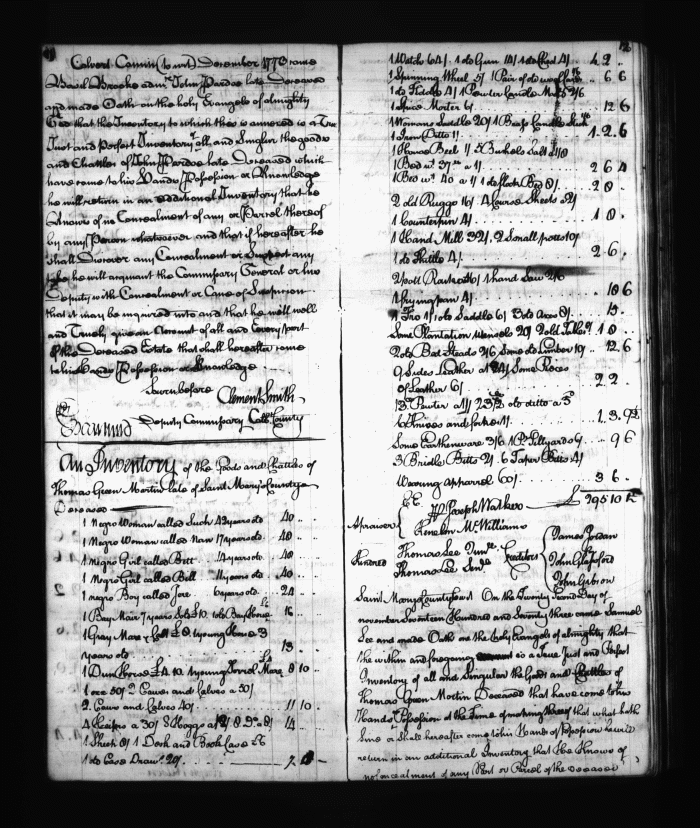 Calvert County (to wit) December 1773 came
Basil Brooke admr. John Pardoe late deceased
and made Oath on the holy Evangels of almighty
God that the Inventory to which this is annexed is a True
Just and Perfect Inventory of all and Singular the goods
and Chattles of John Pardoe late Deceased which
have come to his Hands Possession or Knowledge
he will return in an additional Inventory that he
Knows of no Concealment of any or Parcel thereof
by any Person whatsoever and that if hereafter he
shall Discover any Concealment or Suspect any
he will acquaint the Commissary General or his
Deputy with Concealment or Cause of Suspicion
that it may be inquired into and that he will well
and Truely give an Account of all and Every part
of the Deceased Estate that shall hereafter come
to his Hands Possession or Knowledge
Sworn before Clement Smith
Examined Deputy Commissary Calt. County
An Inventory of the Goods and Chattles of
Thomas Green Martin late of Saint Marys County
Deceased
1 Negro Woman called Suck 42 years old 40
1 Negro Woman called Nan 17 years old 40
1 Negro Girl called Bett 14 years old 40
1 Negro Girl called Bell 11 years old 40
1 negro Boy called Jere 6 years old 24
1 Bay Mair 7 years old £10. 1 old Bay Horse £6 16
1 Gray Mare & Colt £8 1 young Horse 3
years old £5 13
1 Dun Horse £4 10. 1 young Sorriel Mare 8 10
1 ox 50/ 2 Cows and Calves a 50/
2 Cows and Calves 40/ 11 10
4 a 30/ 8 Hoggs a 14
1 Desk and Book Case £6
1 old Case Drawrs. 20/ 7
1 Watch 64/. 1 old Gun 14/ 4 2
1 Spinning Wheel 5/ 1 Pair of old wool Cards 6 6
1 old Fiddle 4/ 1 Pewter Candle 2/6
1 Spice Morter 6/ 12 6
1 Womans Saddle 20/ 1 Brass Candle Stick
1 Iron Ditto 1/ 1. 2. 6
1 House Bell 1/ 5 Bushels Salt
1 Bed wt. 37 a 1/ 2 6 4
1 Bed wt. 40 a 1/ 1 old flock Bed 8/ 2 8
2 old Ruggs 16/. 4 Course Sheets
1 Counterpin 4/ 1 8
1 Hand Mill 32/. 2 Small potts 10/
1 old Kittle 4/ 2 6
1 hand Saw 2/6
1 frying pan 4/ 10 6
1 Fro 1/ 1 old Saddle 6/ 3 old Axes 8/ 15
Some Plantation utensels 20/ 1 0
2 old Bed Steads 2/6 Some old Lumber 10/ 12 6
9 Sides Leather at Some Pieces
of Leather 6/ 2 2
Pewter a 1/ old ditto a
Knives and forks 1/ 1. 3. 9½
Some Earthenware 3/6 1 Pr. Stilyards 9 6
3 Bridle Bitts 2/. 6 Taper Bitts 4/
Wearing apparel 60/ 3 6
E.E. Joseph Walker £ 295 10
Appraisers Renelm McWilliams
Kindred Thomas Lee Junr.
Thomas Lee Senr. Creditors
James Jordan
John Glassford
John Gibson
Saint Marys County Court On the Twenty Second Day of
november Seventeen Hundred and Seventy three came Samuel
Lee and made Oath on the holy Evangels of almighty that
the within and foregoing is a True Just and Perfect
Inventory of all and Singular the Goods and Chattles of
Thomas Green Martin Deceased that have come to his
Hands Possession at the Time of making thereof that what hath
Since or Shall hereafter come to his Hands or Possession he will
return in an additional Inventory that he Knows of
no Concealment of any Part or Parcel of the deceased